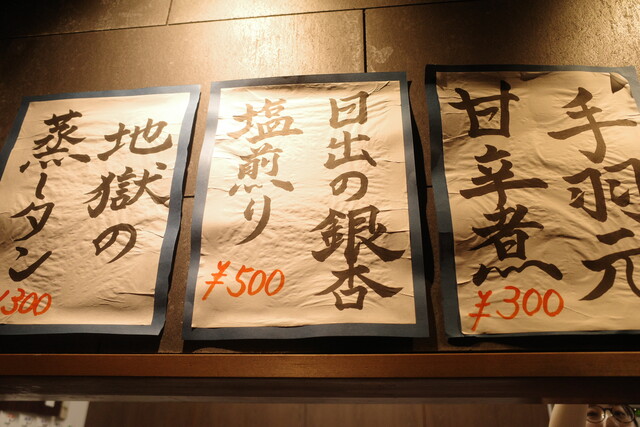 手羽元
甘辛煮
¥300
日出の銀杏
塩煎り
¥500
地獄の
蒸しタン
¥300